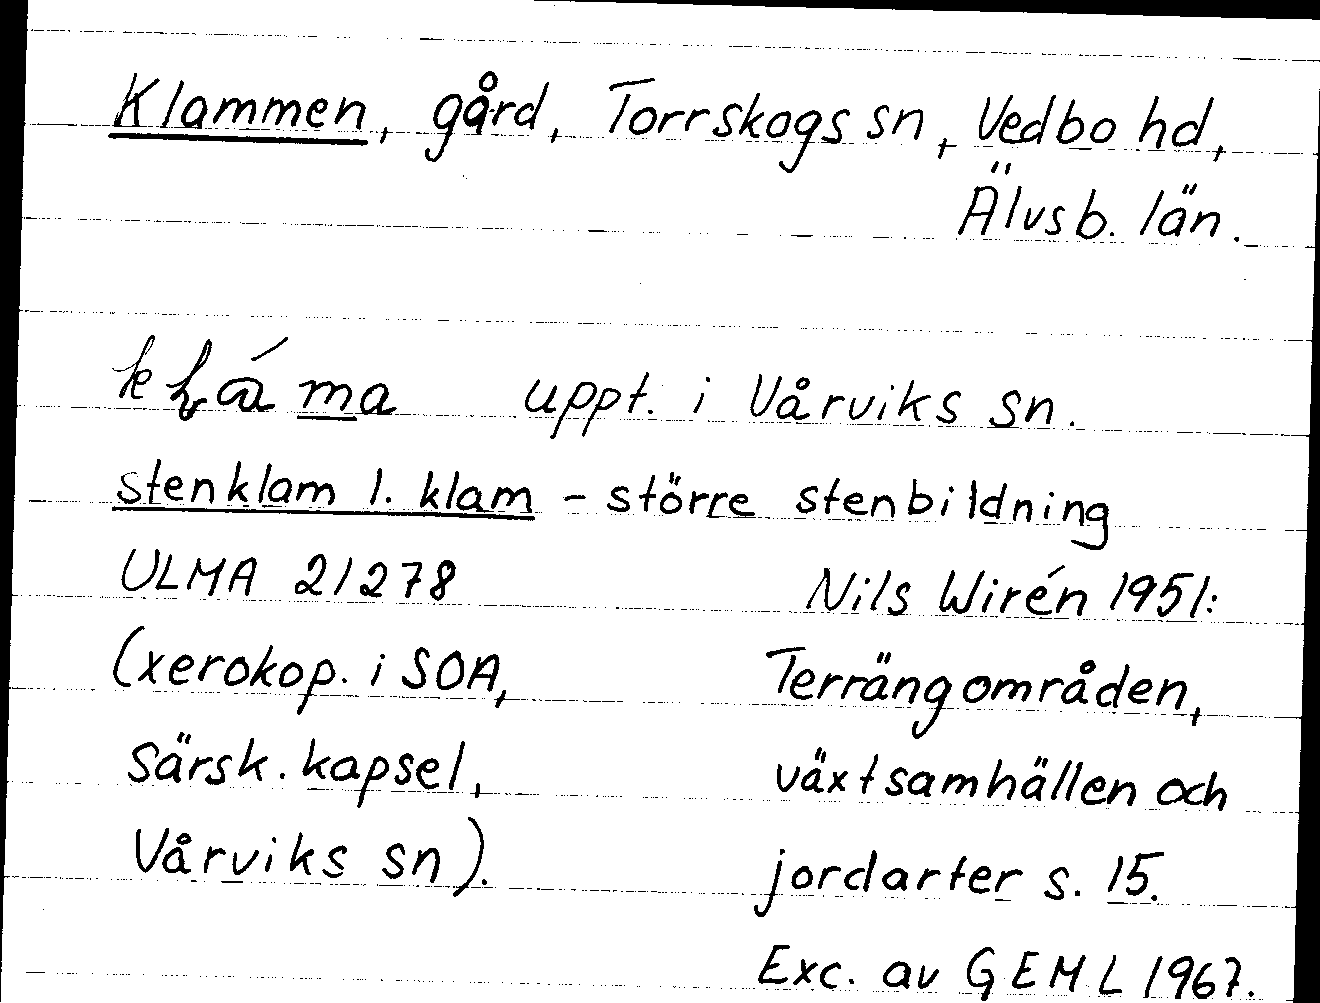 Klammen, gård, Torrskogs sn, Vedbo hd,
Älvsb. län.
uppt. i Vårviks sn.
stenklam l. klam - större stenbildning
ULMA 21278 Nils Wirén 1951:
(xerokop. i SOA, Terrängområden,
särsk. kapsel, växtsamhällen och
Vårviks sn). jordarter s. 15.
Exc. av GEML 1967.